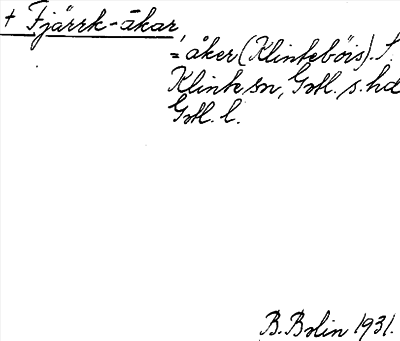 + Fjärrk-åkar,
= åker (Klinteböis). S.
Klinte sn, Gotl. s. hd
Gotl. l.
B. Bolin 1931.